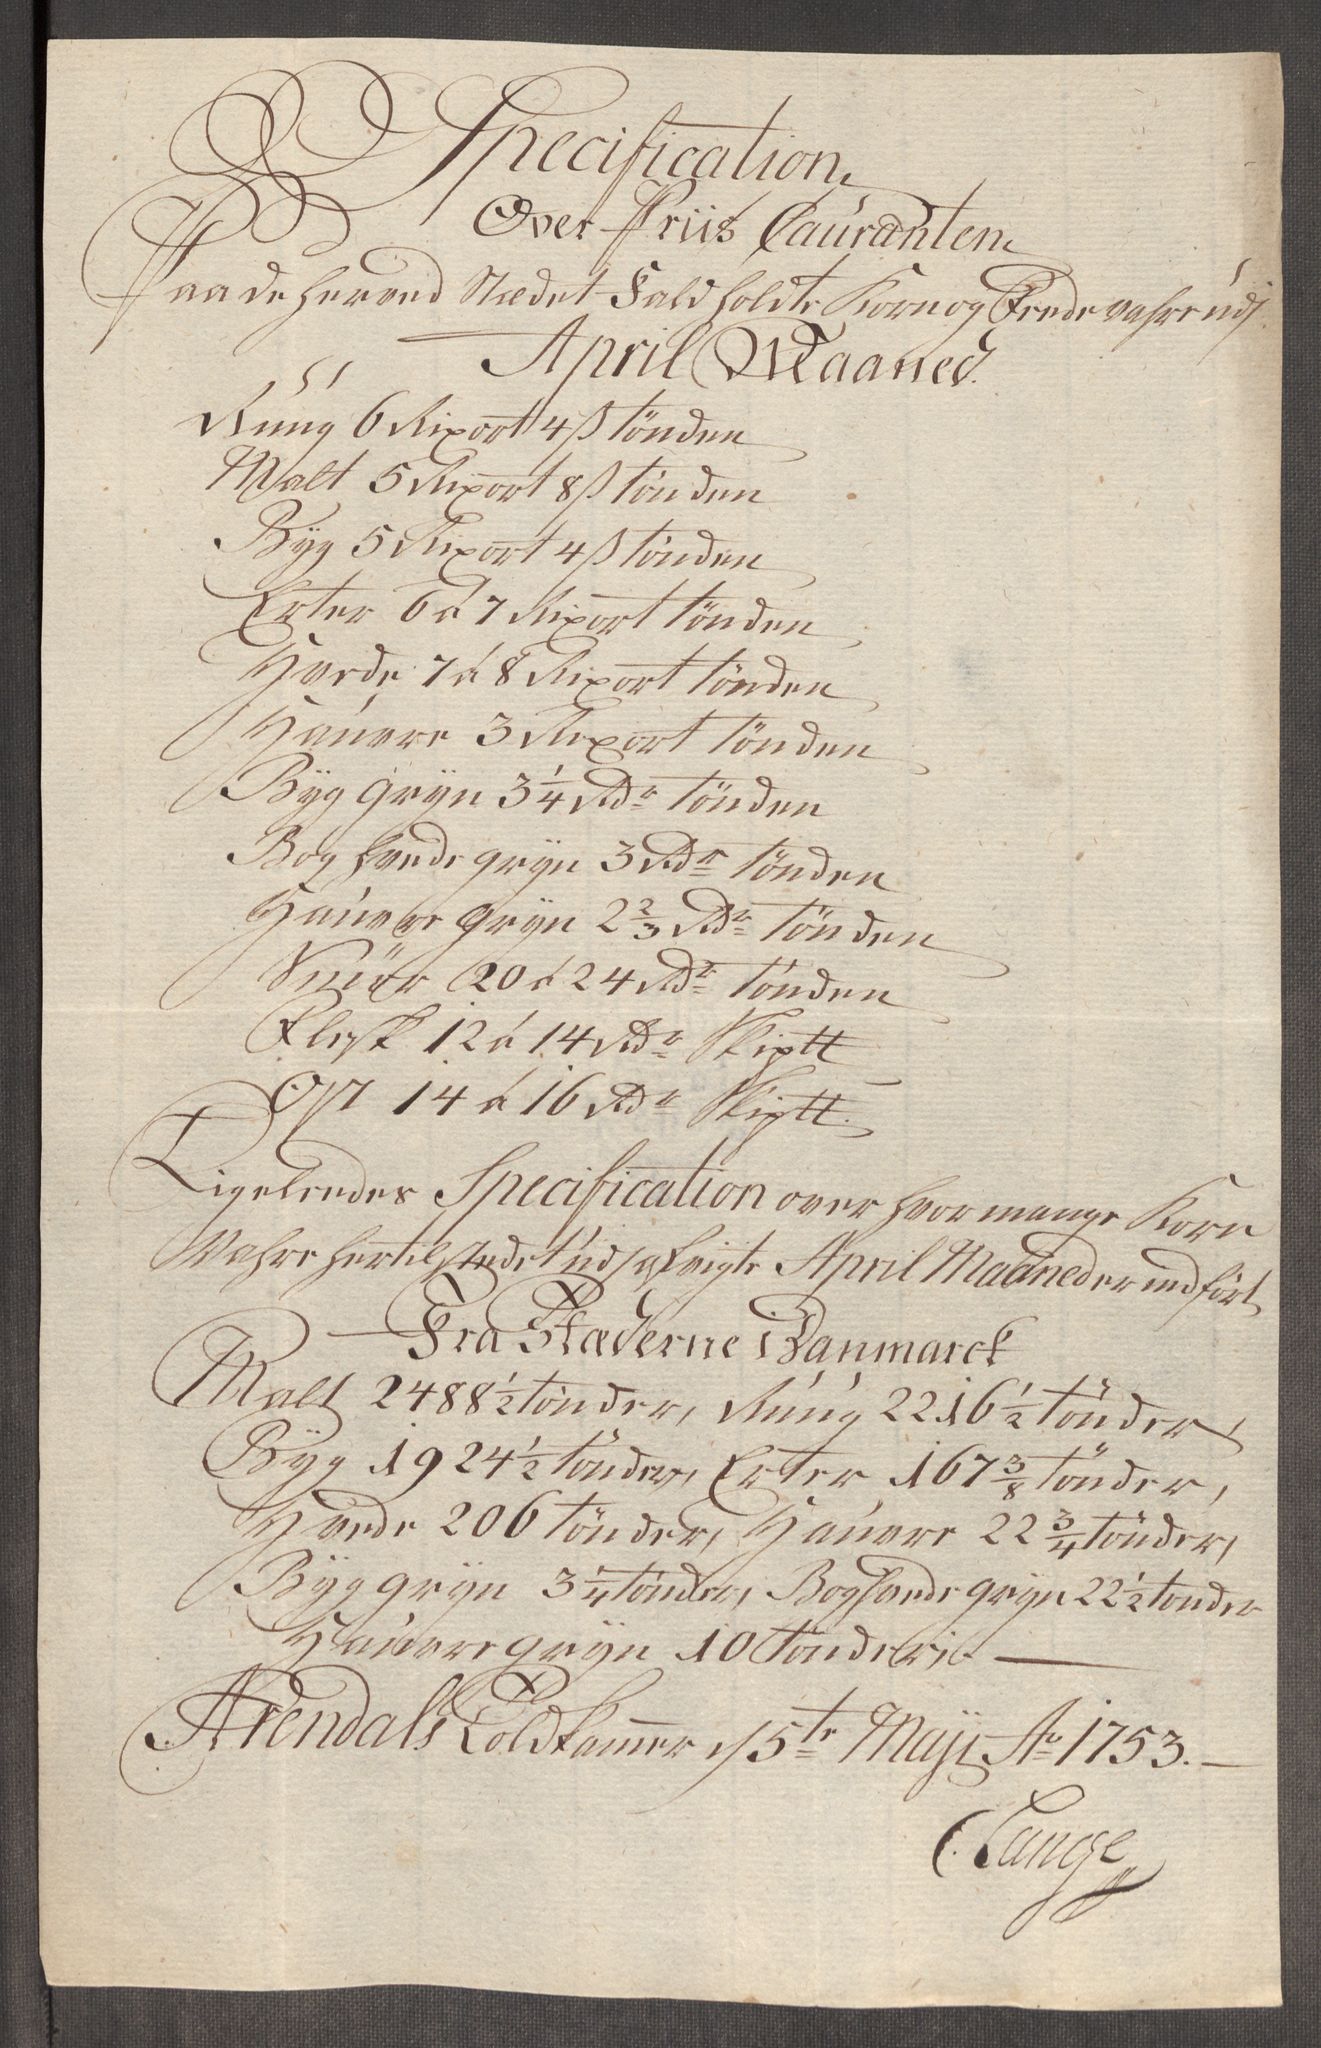 Specification
Over Priis Couranten
Paa de herved Stædet Fald holdte Korn og Fede vahre udj
April Maaned.
Rúúg 6 Rixort 4 ß tönden
Malt 5 Rixort 8 ß tönden
Byg 5 Rixort 4 ß tönden
Erter 6 á 7 Rixort tönden
Hvede 7 á 8 Rixort tönden
Haúvre 3 Rixort tönden
Byg gryn 3 1/4 Rdr tönden
Bog hvede gryn 3 Rdr tönden
Haúvre gryn 2 2/3 Rdr tönden
Smiör 20 á 24 Rdr tönden
Flesk 12 á 14 Rdr Skiptt
Ost 14 á 16 Rdr Skiptt.
Ligeleedes Specification over hvor mange Korn
Vahre hertil stædet udj afvigte April Maaned er indfört
Fra Stæderne i Danmarck
Malt 2488 1/2 tönder, Rúúg 2216 1/2 tönder,
Byg 1924 1/2 tönder, Erter 167 3/8 tönder,
Hvede 206 tönder, Haúvre 22 3/4 tönder,
Byg gryn 3 1/4 tönder, Boghvede gryn 22 1/2 tönder
Haúvre gryn 10 tönder
Arendals Toldkamer d 5te Maji Ao 1753.
C. Lange